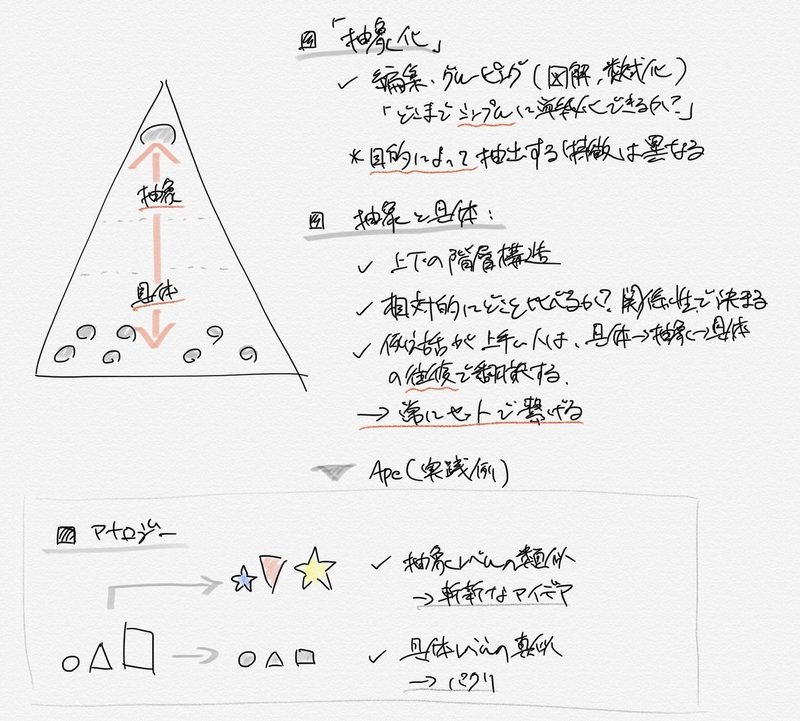 「抽象化」
✓ 編集・グルーピング(図解、数式化)
「どこまでシンプルに単純化できるか?」
*目的によって抽出する特徴は異なる
抽象と具体:
✓ 上下の階層構造
✓ 相対的にどこと比べるか?関係性で決まる
✓ 例え話が上手い人は、具体→抽象→具体
の往復で翻訳する。
→ 常にセットで繋げる
抽象
具体
Apc(実践例)
アナロジー
✓ 抽象レベルの類似
→斬新なアイデア
✓ 具体レベルの真似
→パクリ